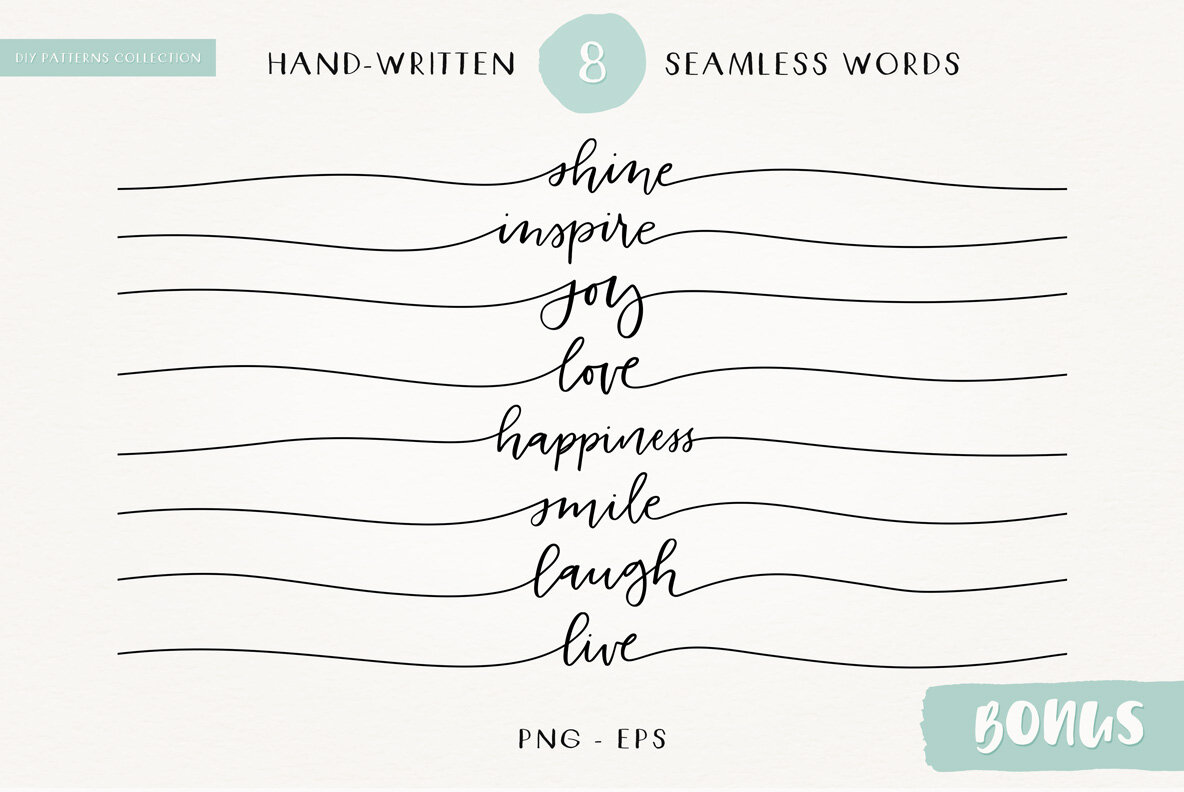 DIY PATTERNS COLLECTION
HAND-WRITTEN 8 SEAMLESS WORDS
shine
inspire
joy
love
happiness
smile
laugh
live
BONUS
PNG - EPS